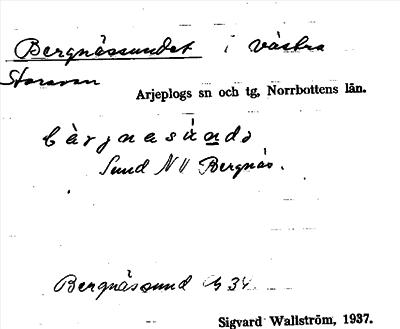 Bergnässundet i västra
Storavan
Arjeplogs sn och tg, Norrbottens län.
bärjnasùndə
Sund N Bergnäs.
Bergnässund 34.
Sigvard Wallström, 1937.